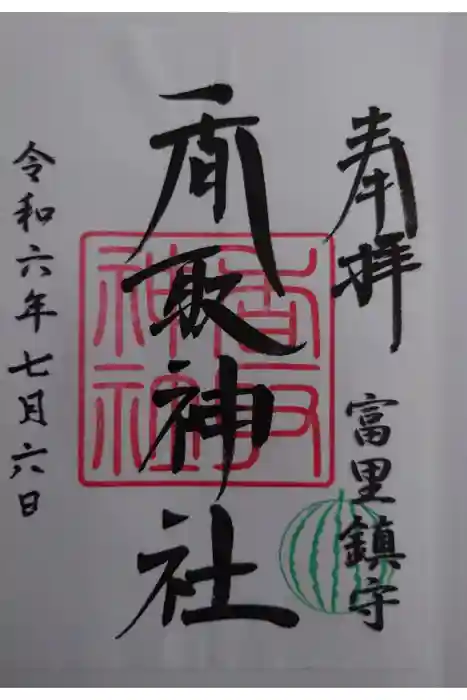 奉拝
富里鎮守
香取神社
香取神社
令和六年七月六日